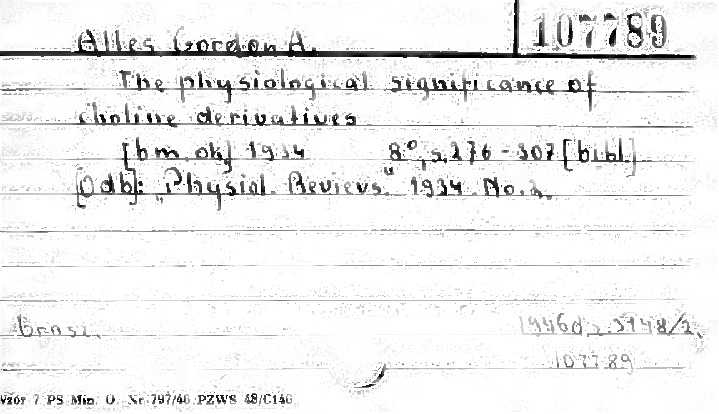 Alles Gordon A. 107789
The physiological significance of
choline derivatives
[bm. ok] 1934 8°, s. 276-307 [bibl.]
[Odb]: „Physiol. Revievs" 1934 No. 2.
Brosz. 1946 d. 3148/2
107789
Wzór 7 PS Min. O. Nr 797/46 PZWS 48/C146